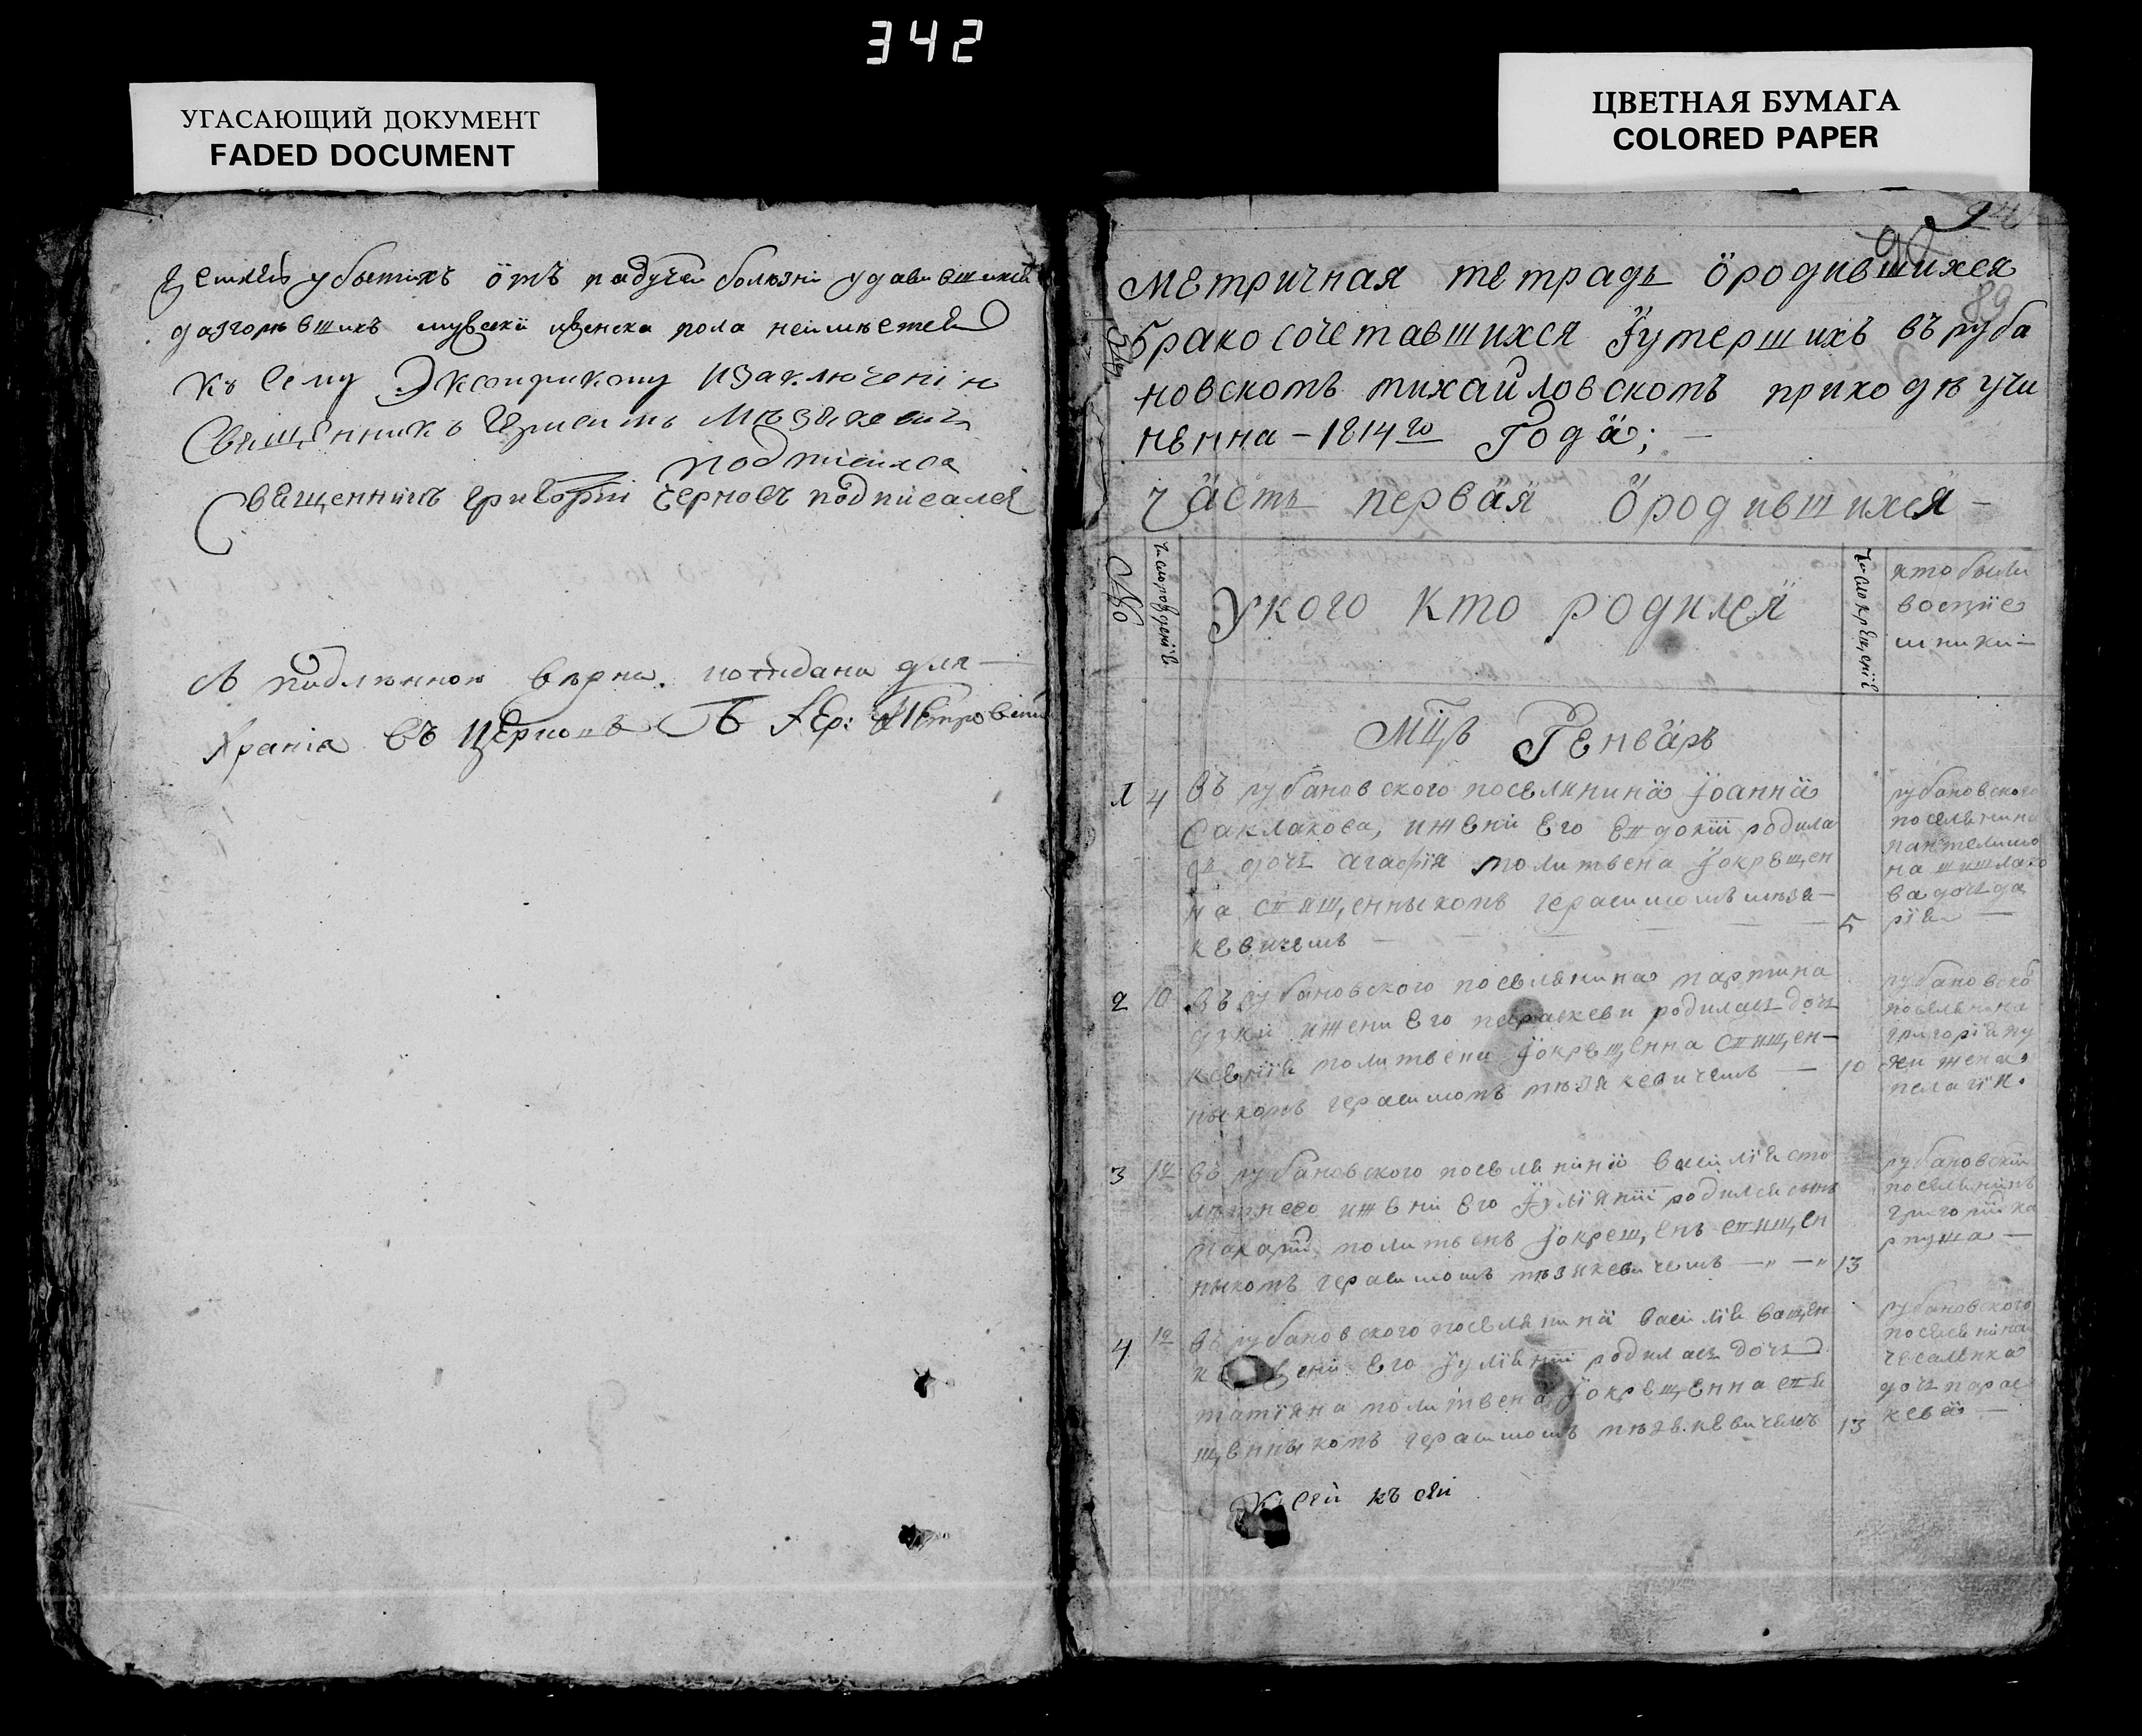 342
УГАСАЮЩИЙ ДОКУМЕНТ
FADED DOCUMENT
ЦВЕТНАЯ БУМАГА
COLORED PAPER
убытихъ отъ падучей болюзни удавившихся
мужска иженска пола неимѣется
къ сему Экстрактому изаключенію
Священникъ Герасимъ Мѣзякевичъ
подписался
Священникъ григорій Черновъ подписался
Съ подлѣнною вѣрна. и отдана для
храніа въ Церковъ
90
89
Метричная тетрадь ородившихся
бракосочетавшихся іумершихъ въ руба
новскомъ михайловскомъ приходѣ учи
ненна – 1814го Года; –
Часть первая ородившихся –
№
число рожденія
Укого кто родился
число крещенія
кто были
воспріе
мники –
Мцъ Генварь
1 4 въ рубановского поселянина Іоанна
Саклакова, ижени Его Евдокіи родила
сь дочь агафія молитвена іокрещен
на священныкомъ герасимомъ мѣзя–
кевичемъ – 5
рубановского
поселянина
пантелимо
на шишлако
ва дочь да
рія –
2 10 въ рубановского поселянина мартина
дзки ижени Его параскеви родилась дочь
ксенія молитвена іокрещенна священ–
ныкомъ герасимомъ мѣзякевичемъ – 10
рубановско
поселянина
григорія пу
жи жена
пелагія.
3 12 въ рубановского поселянина василія сто
лѣтнего ижени Его Іуліяніи родился сынъ
макарій молитвенъ іокрещенъ священ
ныкомъ герасимомъ мѣзякевичемъ – „ – „ 13
рубановскій
поселянинъ
григорій ка
рпуша –
4 12 въ рубановского поселянина василія ващен
к жени Его Іуліяніи родилась дочь
татіяна молитвена іокрещенна свя
щенныкомъ герасимомъ мѣзякевичемъ 13
рубановского
поселянина
чесалѣнка
дочь парас
кева –
къ сей